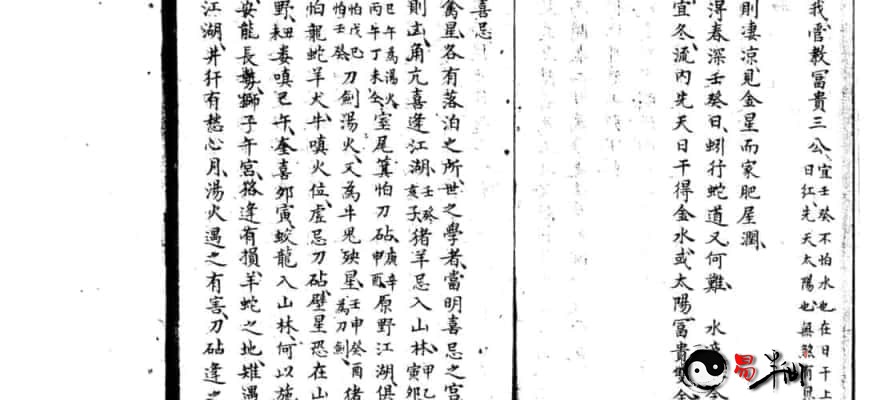 我管教富貴三公宜壬癸不怕水也在日干上
日紅先天太陽也無煞
則凄凉見金星而家肥屋潤
得春深壬癸日蚓行蛇道又何難 水
宜冬流內先天日干得金水或太陽富貴雙全
喜忌
禽星各有落泊之所世之學者當明喜忌之宮
則出角亢喜逢江湖壬癸亥子猪羊忌入山林甲乙寅卯
巳午為湯火丙午丁未仝室尾箕怕刀砧庚辛申酉原野江湖俱
怕戊巳怕壬癸刀劍湯火又為牛鬼殃星壬申癸酉為刀劍猪
怕龍蛇羊犬牛嗔火位虛忌刀砧壁星恐在山
野杻婁嗔巳午奎喜卯寅蛟龍入山林何以施
安龍長勢獅子午宮狢逢有損羊蛇之地雉遇
江湖井犴有愁心月湯火遇之有害刀砧逢之
易半仙